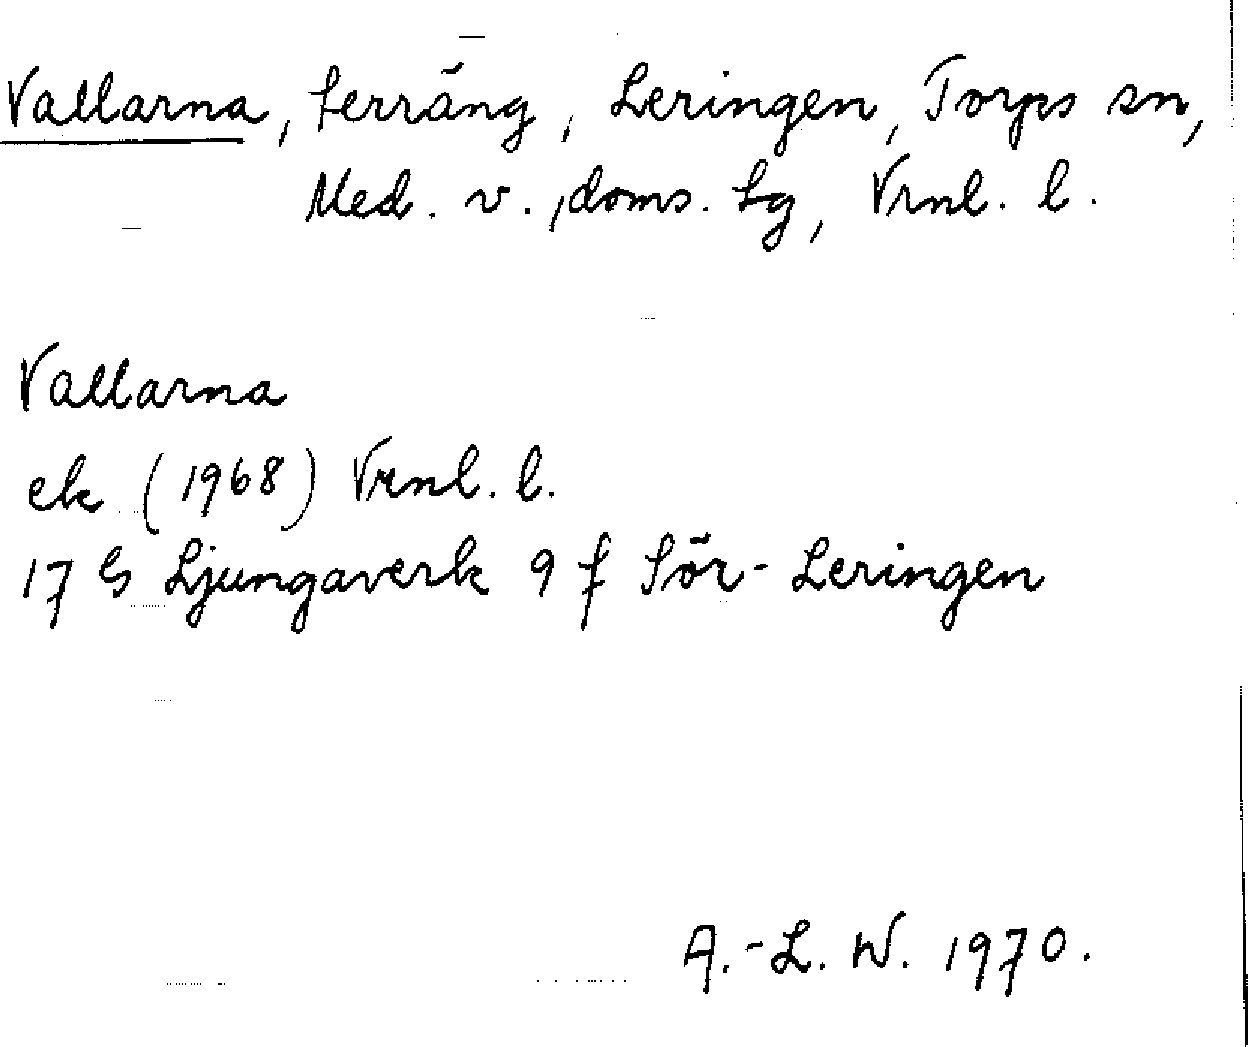 Vallarna, terräng, Leringen, Torps sn,
Med. v., doms. lg, Vrnl. l.
Vallarna
ek (1968) Vrnl. l.
17 G Ljungaverk 9 f Sör-Leringen
A.-L. W. 1970.